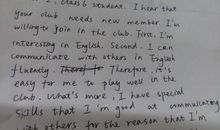 2. Class 6 student. I hear that
your club needs new member. I'm
willing to join in the club. First, I'm
interesting in English. Second. I can
communicate with others in English
fluently. Therefor Therefore, it's
easy for me to play well in the
club. What's more, I have special
skills that I'm good at communicating
with others for the reason that I'm